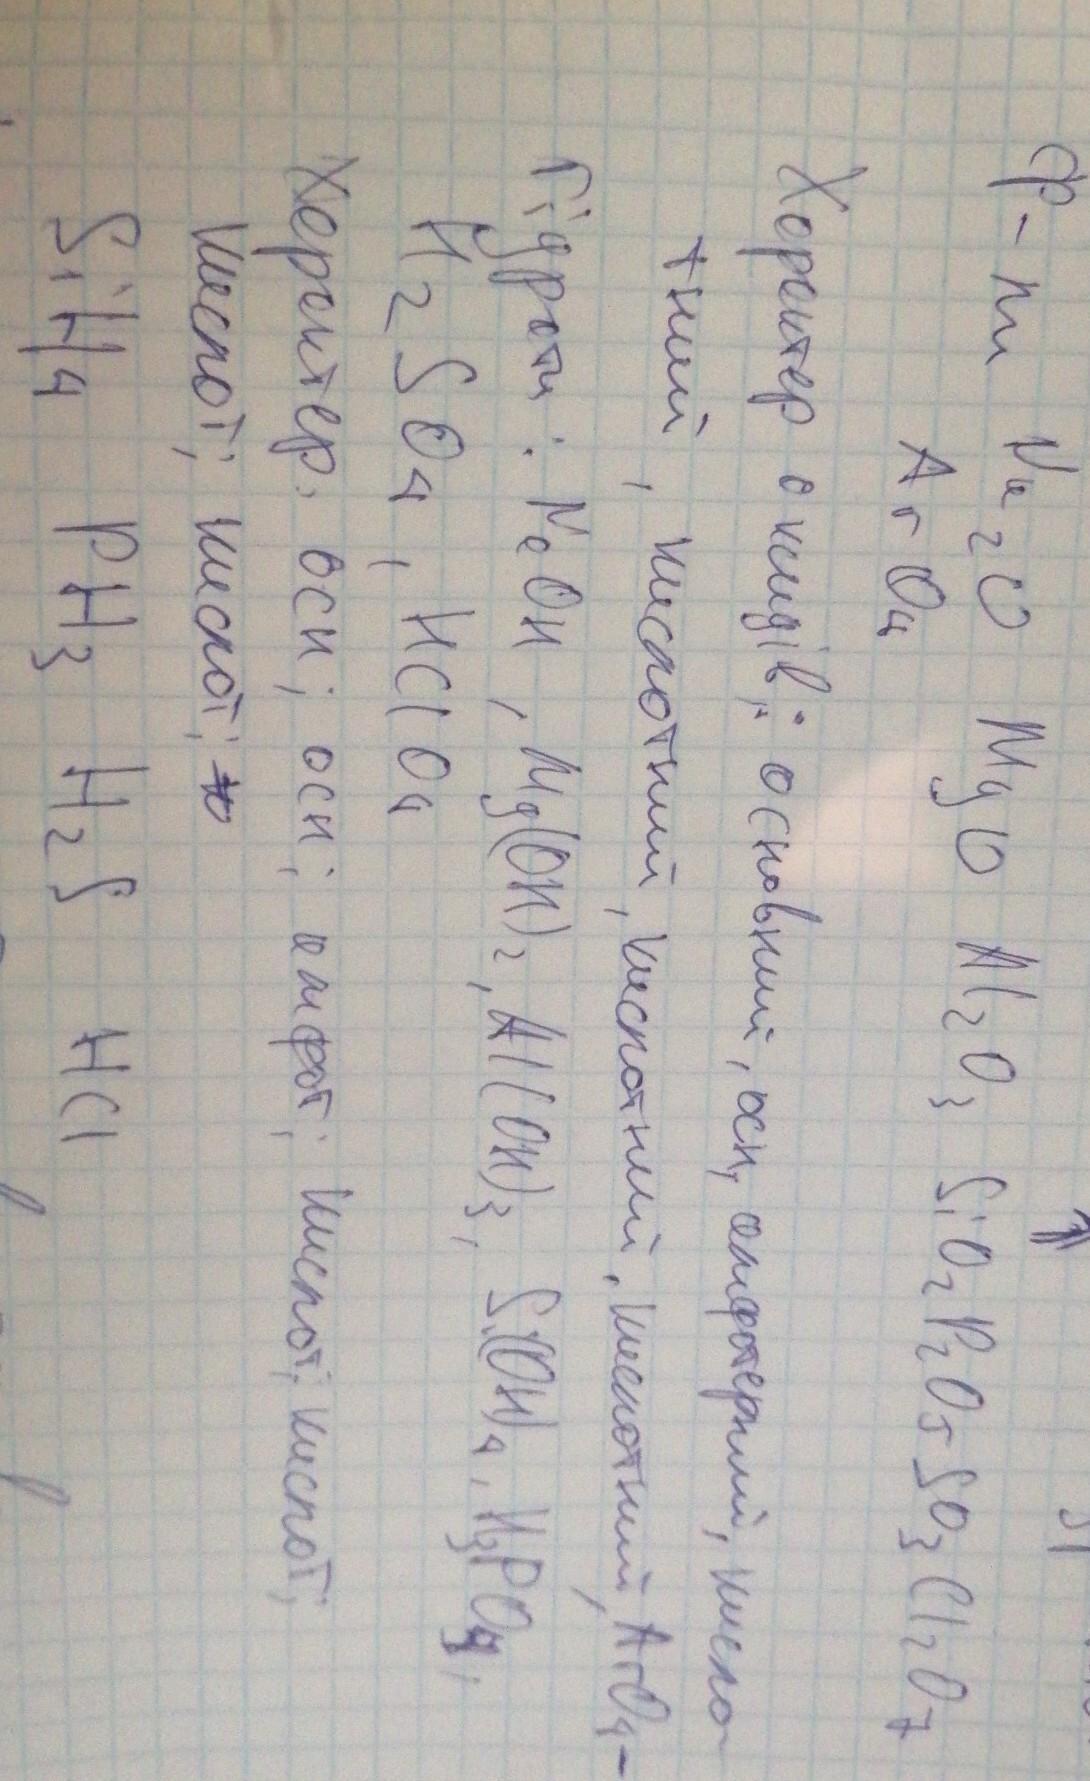 Ф-ли Na2O MgO Al2O3 SiO2 P2O5 SO3 Cl2O7
ArO4
Характер оксидів: основний, осн, амфотерний, кисло
тний, кислотний, кислотний, кислотний, ArO4-
Гідрати: NaOH, Mg(OH)2, Al(OH)3, Si(OH)4, H3PO4,
H2SO4, HClO4
Характер. осн; осн; амфот; кислот; кислот;
кислот; кислот;
SiH4 PH3 H2S HCl